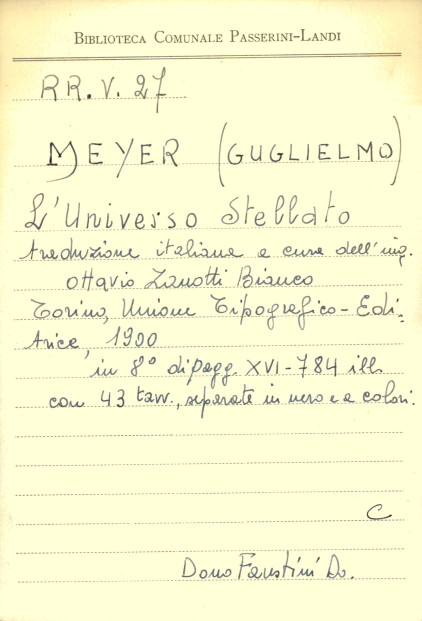 BIBLIOTECA COMUNALE PASSERINI-LANDI
RR.V.27
MEYER (GUGLIELMO)
L'Universo Stellato
traduzione italiana a cura dell'ing.
Ottavio Zanotti Bianco
Torino, Unione Tipografico-Edi-
trice, 1900
in 8° di pagg. XVI-784 ill.
con 43 tavv., separate in nero e a colori.
C
Dono Faustini Do.